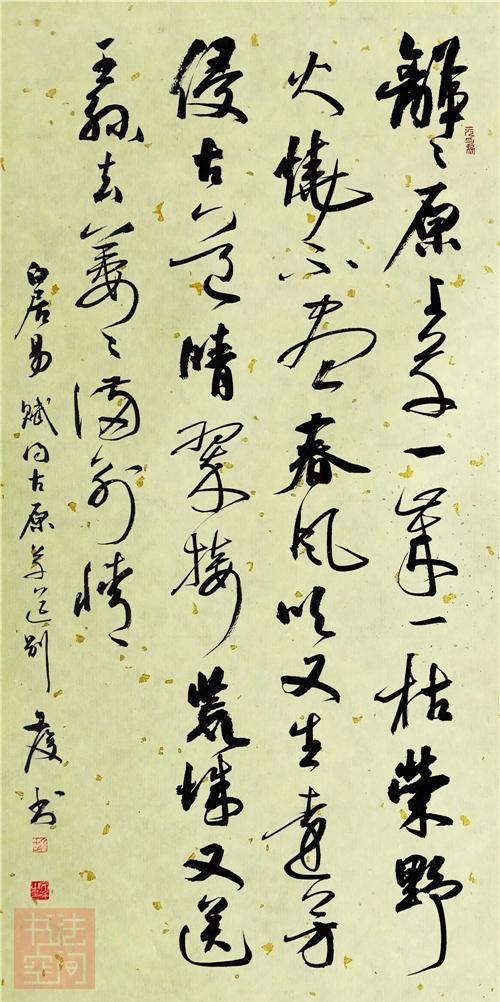 離〻原上草一歲一枯榮野
火燒不盡春風吹又生遠芳
侵古道晴翠接荒城又送
王孫去萋〻滿別情
白居易賦得古原草送別
书
书法
空间